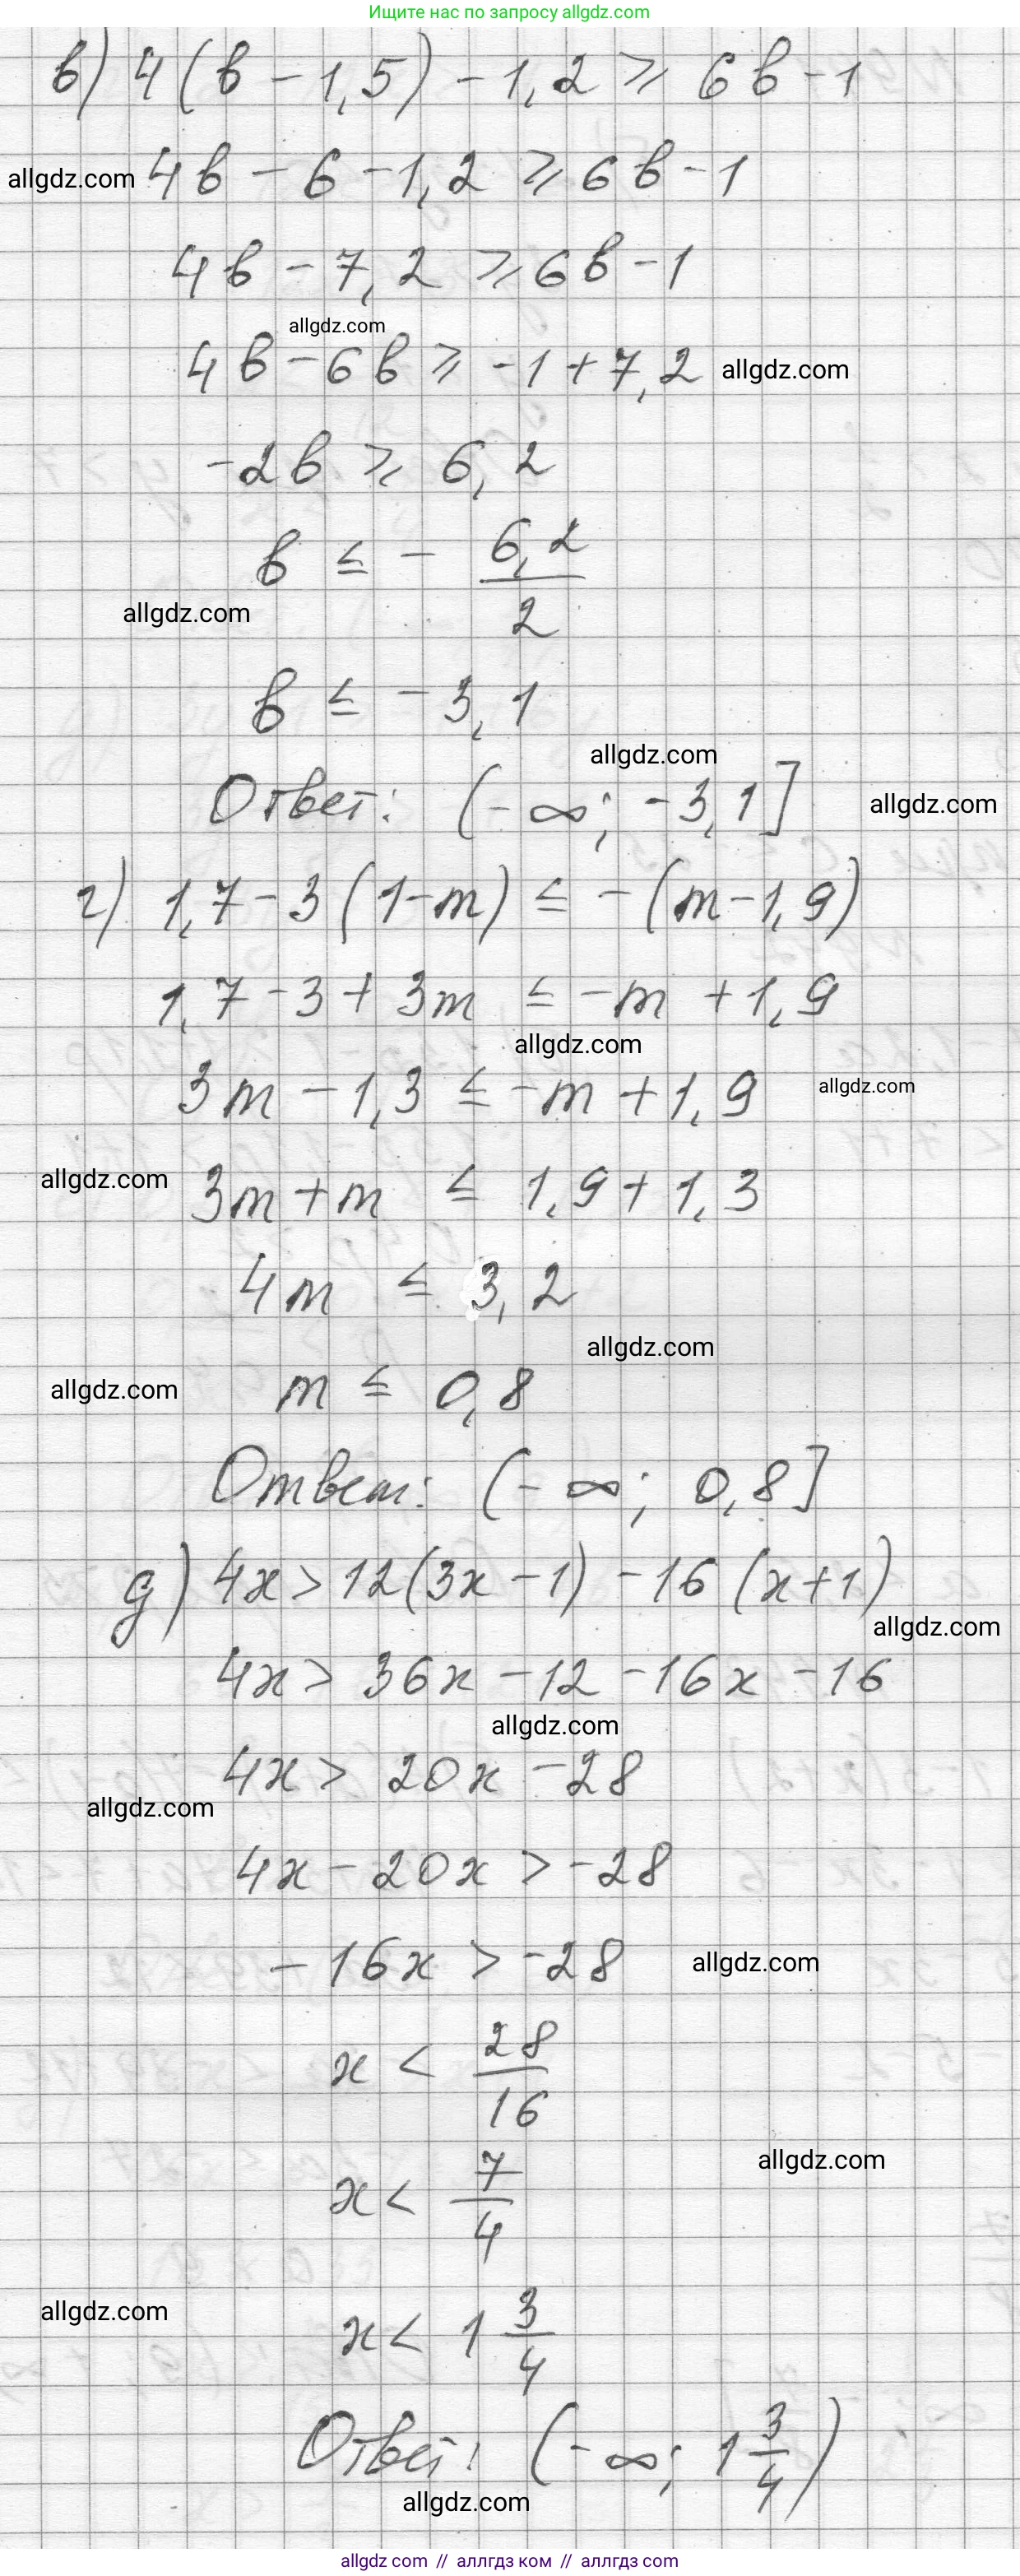 Ищите нас по запросу allgdz.com
в) 4(b - 1,5) - 1,2 ⩾ 6b - 1
allgdz.com 4b - 6 - 1,2 ⩾ 6b - 1
4b - 7,2 ⩾ 6b - 1
allgdz.com
4b - 6b ⩾ -1 + 7,2 allgdz.com
-2b ⩾ 6,2
b ≤ - 6,2/2
allgdz.com
b ≤ -3,1
allgdz.com
Ответ: (-∞; -3,1] allgdz.com
г) 1,7 - 3(1-m) ≤ -(m-1,9)
1,7 - 3 + 3m ≤ -m + 1,9
allgdz.com
3m - 1,3 ≤ -m + 1,9 allgdz.com
allgdz.com 3m + m ≤ 1,9 + 1,3
4m ≤ 3,2
allgdz.com
allgdz.com m ≤ 0,8
Ответ: (-∞; 0,8]
д) 4x > 12(3x - 1) - 16(x+1)
allgdz.com
4x > 36x - 12 - 16x - 16
allgdz.com
4x > 20x - 28
allgdz.com
4x - 20x > -28
-16x > -28 allgdz.com
x < 28/16
allgdz.com
x < 7/4
allgdz.com
x < 1 3/4
Ответ: (-∞; 1 3/4)
allgdz.com
allgdz com // аллгдз ком // allgdz com